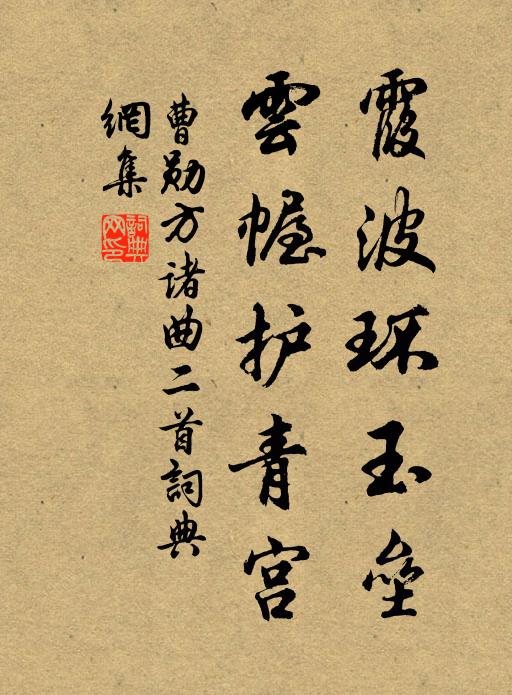 霞波环玉垒
雲幄护青宫
曹勋方诸曲二首詞典
網集
詞典网印